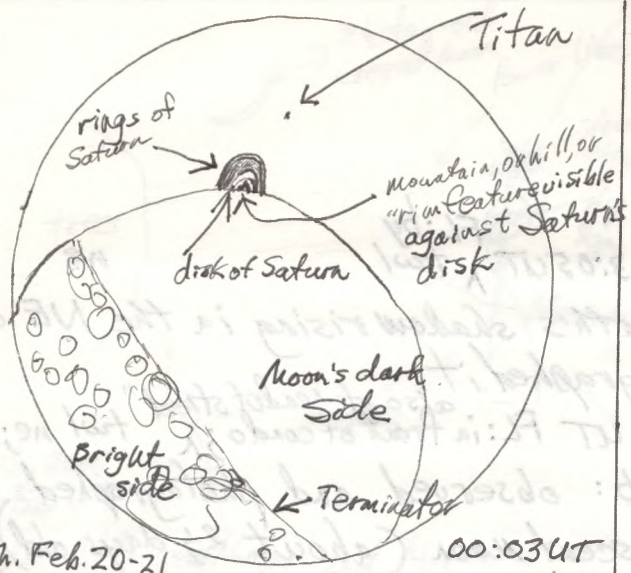 Titan
rings of
Saturn
mountain, or hill, or
"rim feature visible
against Saturn's
disk
disk of Saturn
Moon's dark
Side
Bright
side
Terminator
h. Feb. 20-21
00:03 UT